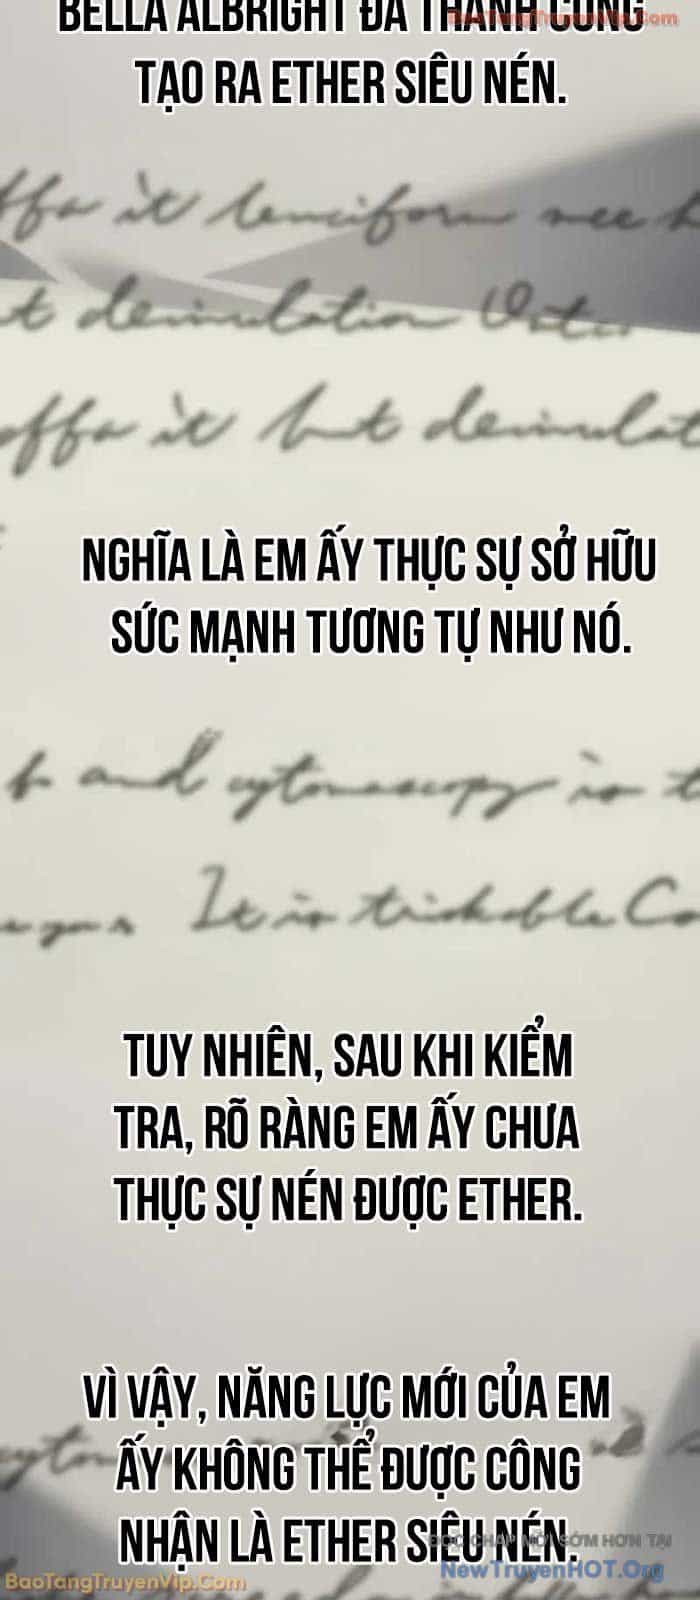 BELLA ALBRIGHT ĐÃ THÀNH CÔNG
BaoTangTruyenVip.Com
TẠO RA ETHER SIÊU NÉN.
offa it
t demulation
offa it but
NGHĨA LÀ EM ẤY THỰC SỰ SỞ HỮU
SỨC MẠNH TƯƠNG TỰ NHƯ NÓ.
and cytomescopy is t
It is trickable Co
TUY NHIÊN, SAU KHI KIỂM
TRA, RÕ RÀNG EM ẤY CHƯA
THỰC SỰ NÉN ĐƯỢC ETHER.
VÌ VẬY, NĂNG LỰC MỚI CỦA EM
ẤY KHÔNG THỂ ĐƯỢC CÔNG
NHẬN LÀ ETHER SIÊU NÉN.
ĐỌC CHAP MỚI SỚM HƠN TẠI
NewTruyenHOT.Org
BaoTangTruyenVip.Com